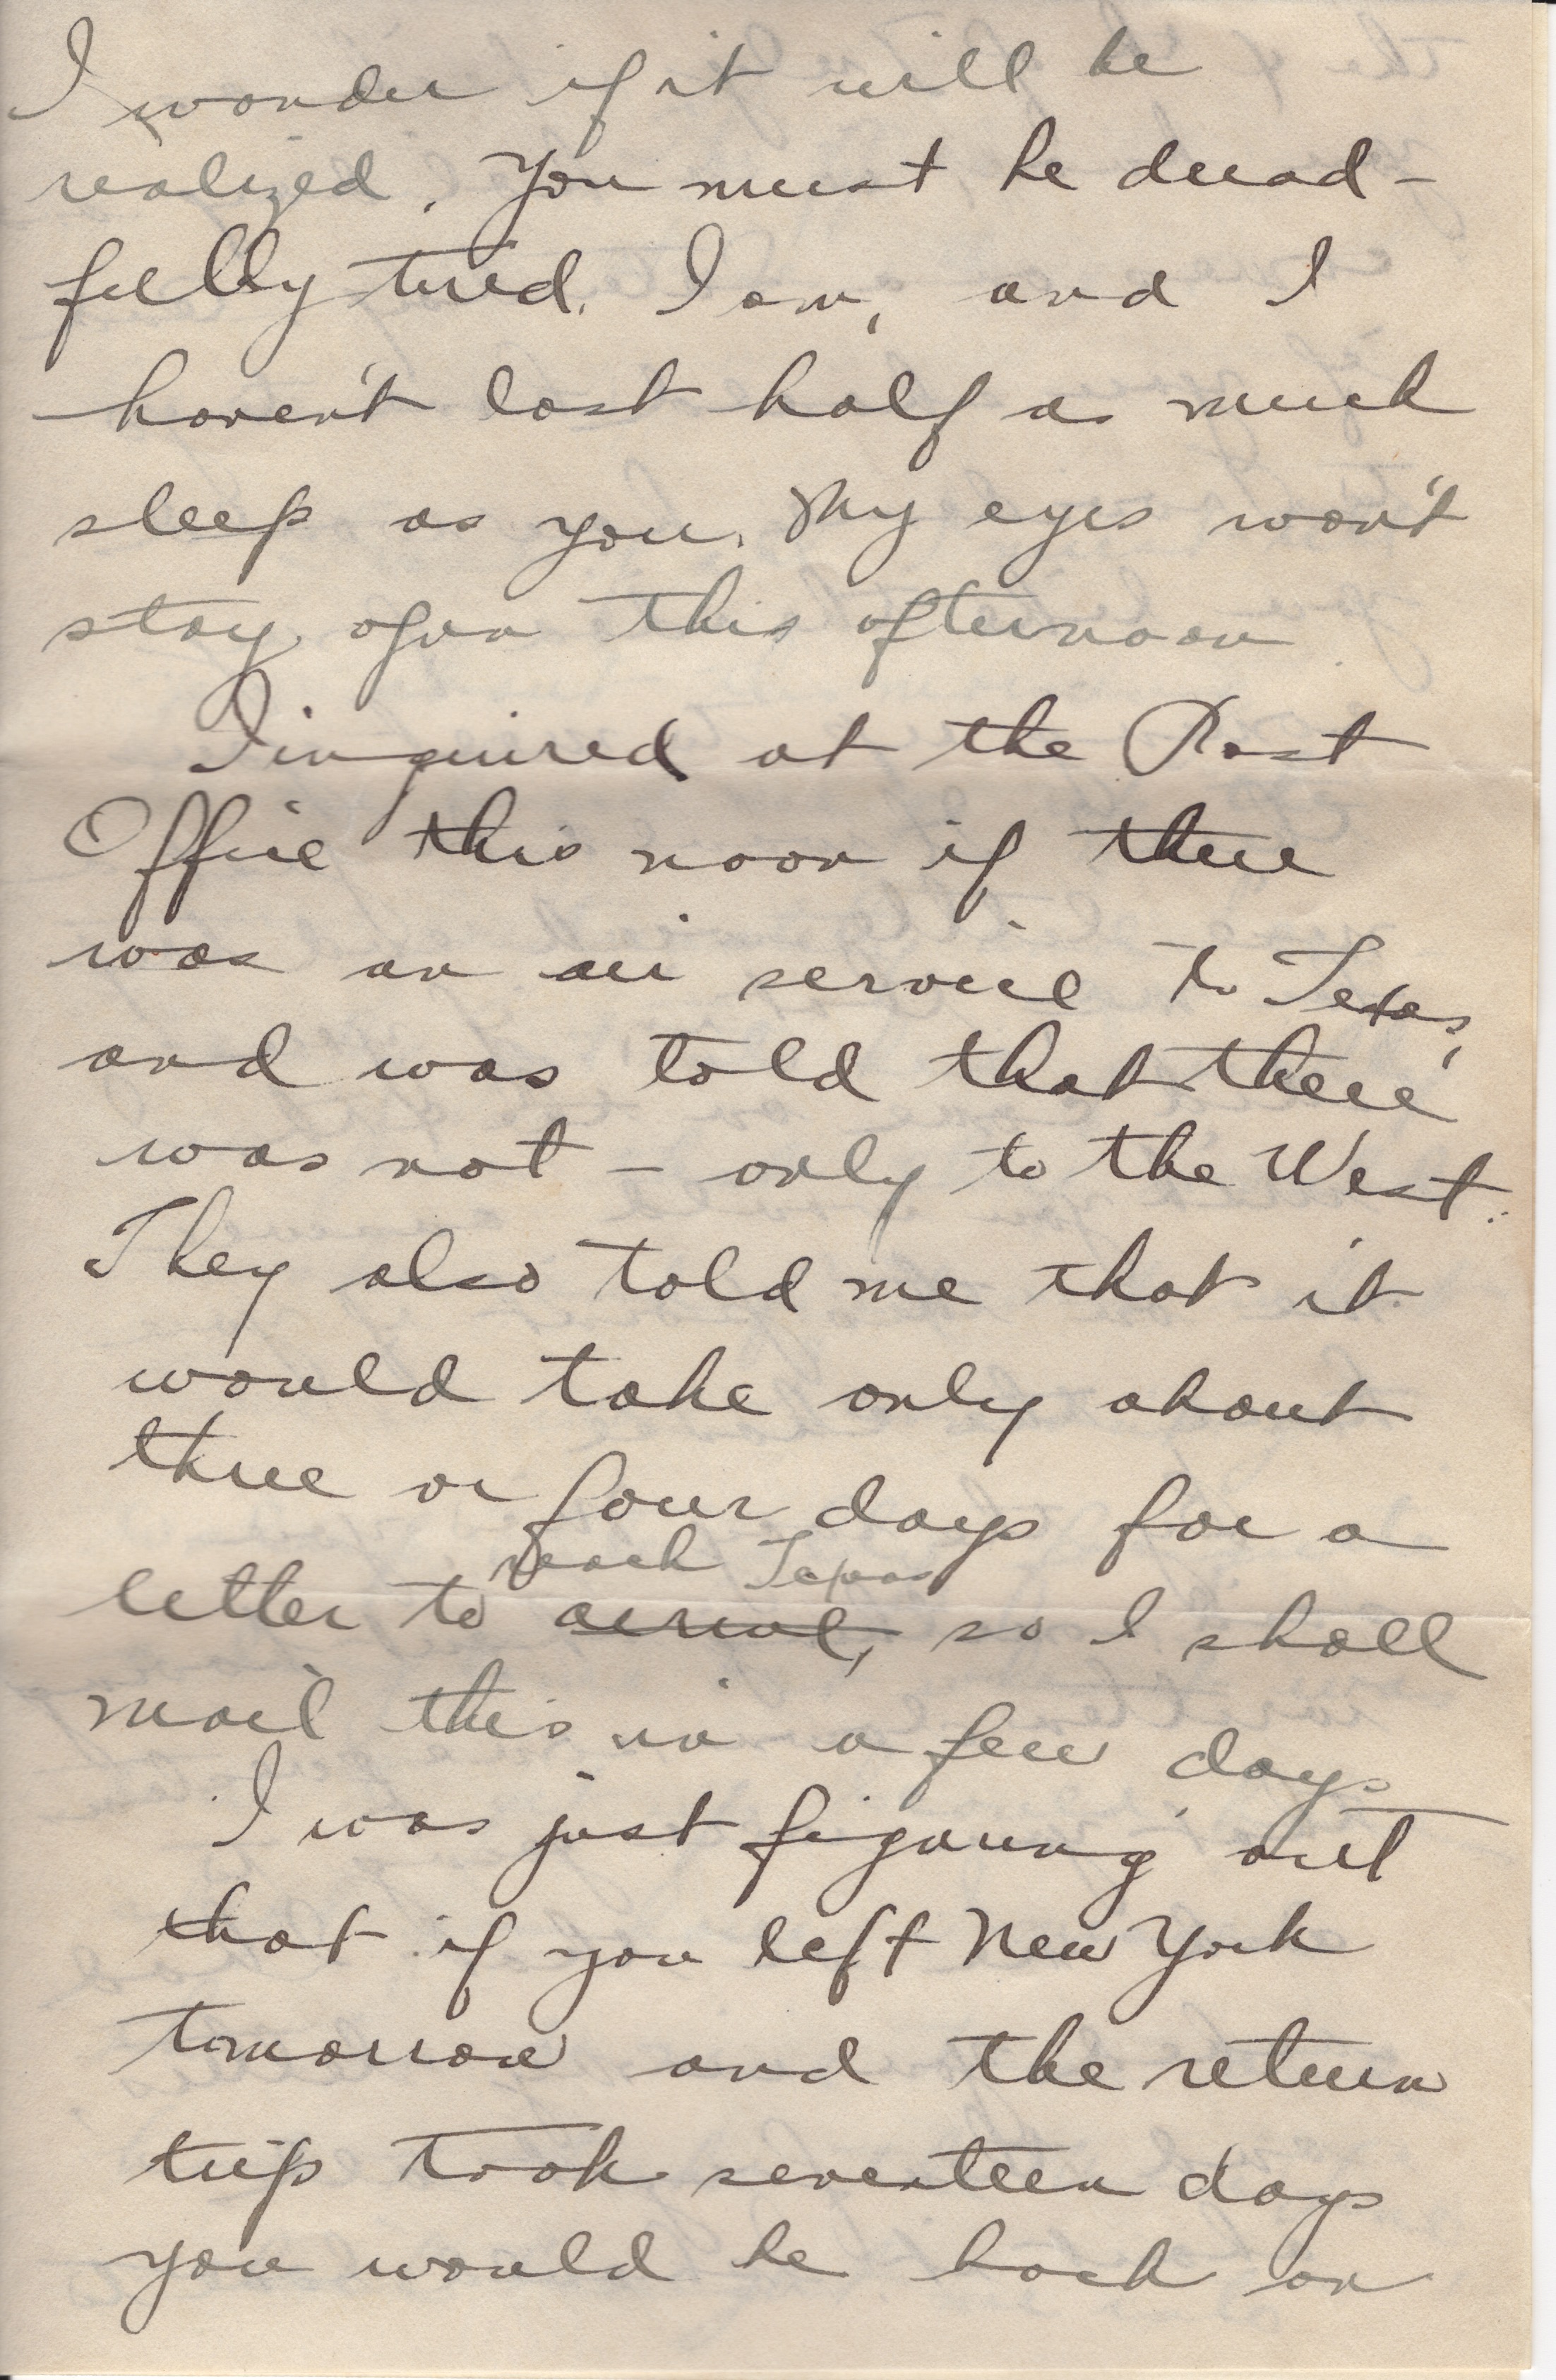 I wonder if it will be
realized. You must be dread-
fully tired. I am, and I
haven't lost half as much
sleep as you. My eyes won't
stay open this afternoon.
I inquired at the Post
Office this noon if there
was an air service to Texas,
and was told that there
was not – only to the West.
They also told me that it
would take only about
three or four days for a
reach Texas
letter to arrive, so I shall
mail this in a few days.
I was just figuring out
that if you left New York
tomorrow and the return
trip took seventeen days
you would be back on